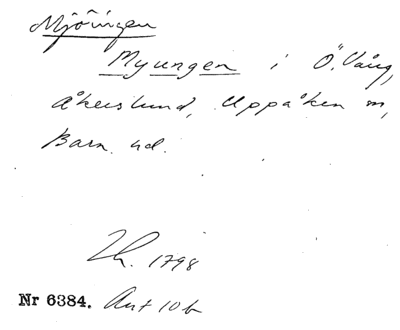 Mjöingen
Myungen i Ö. Vång,
Åkerslund, Uppåkra m,
Barn. hd.
1798
Nr 6384. Ant 10 b